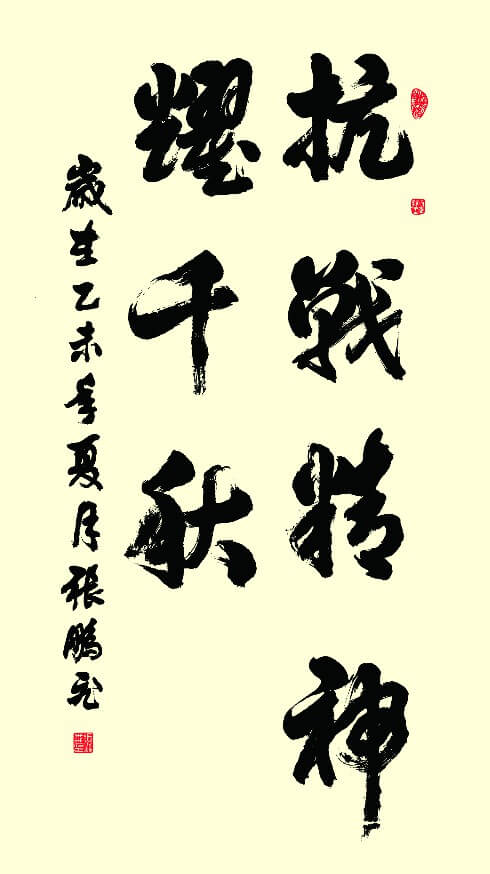 抗戰精神
耀千秋
歲在乙未年夏月張鵬飞